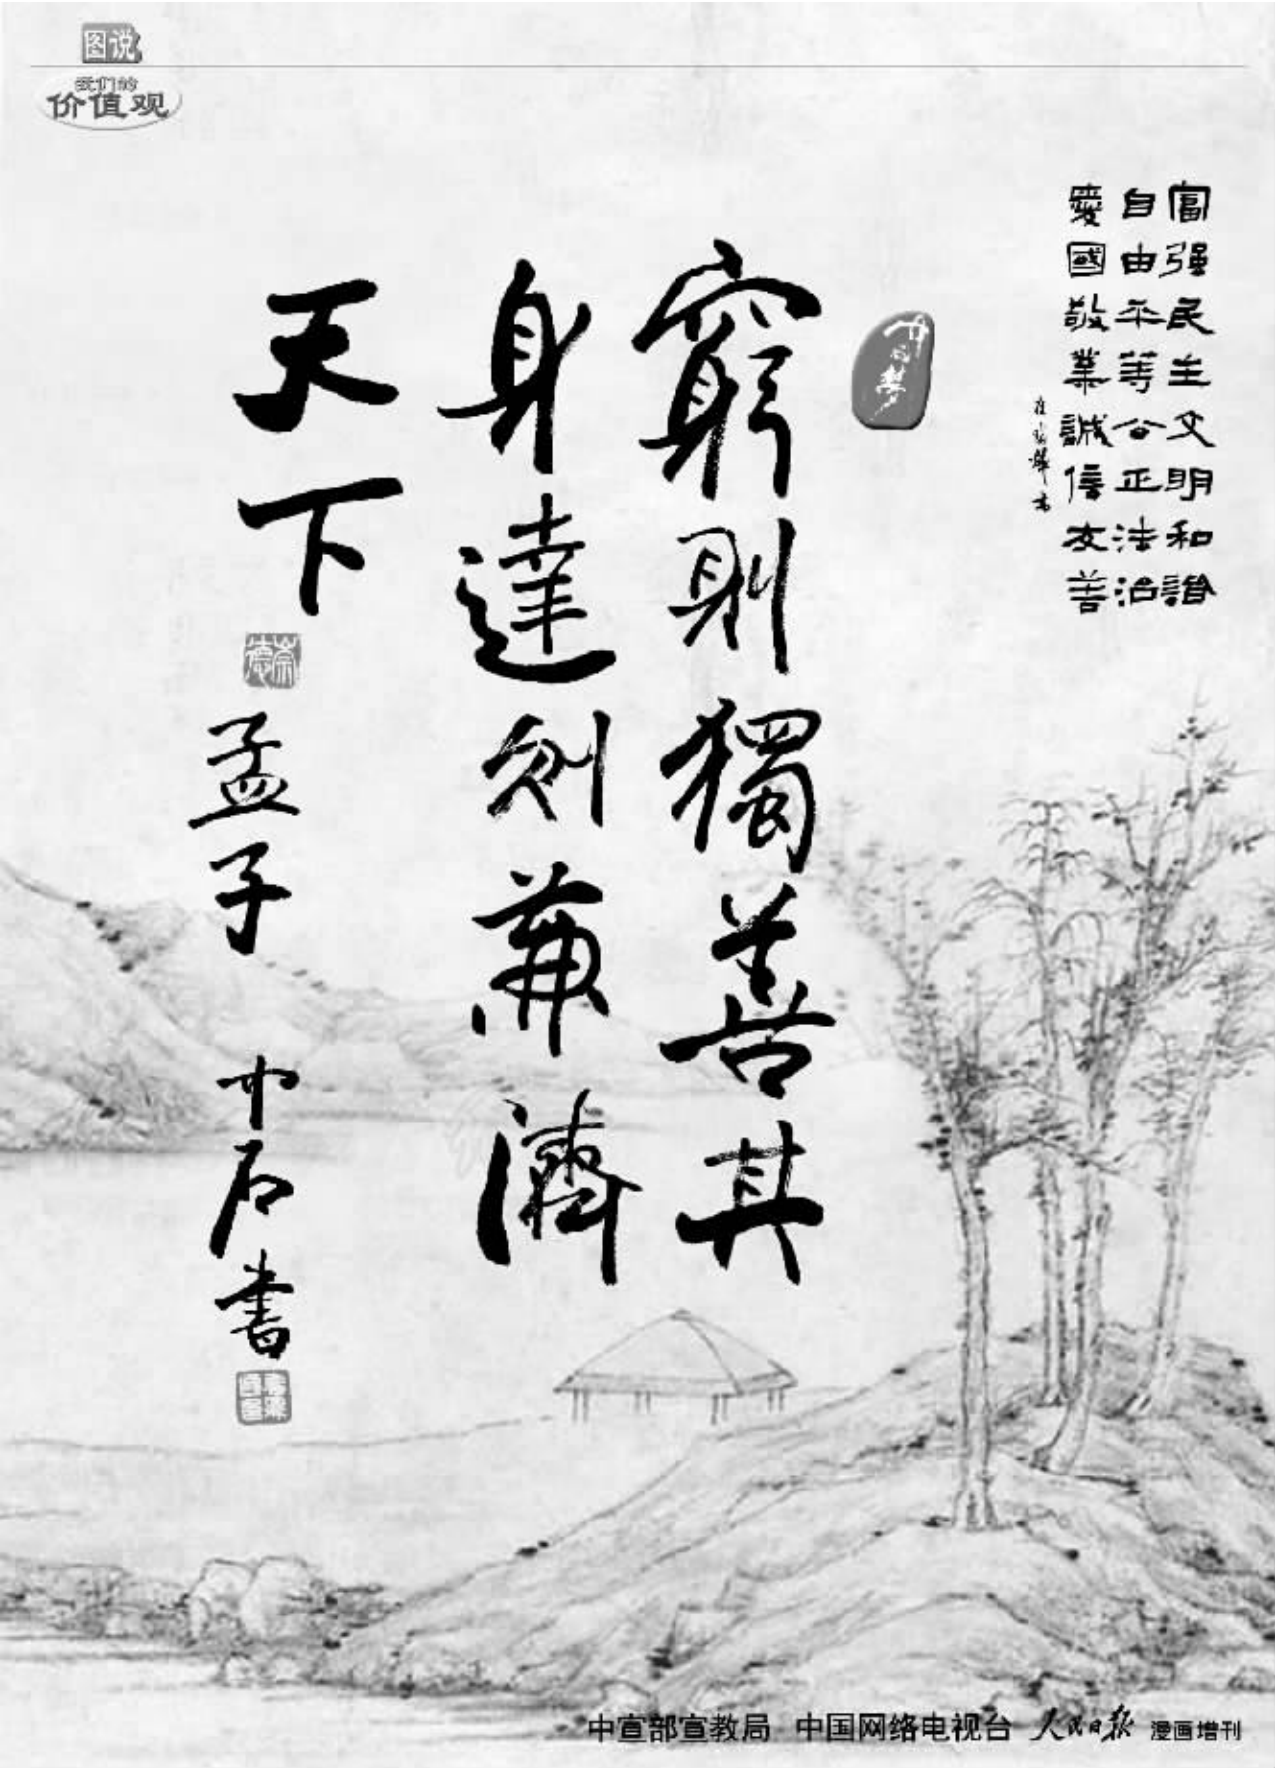 图说
我们的
价值观
富强民主文明和諧
自由平等公正法治
愛國敬業誠信友善
中国梦
窮則獨善其
身達則兼濟
天下
崇德
孟子 中石書
中宣部宣教局 中国网络电视台 人民日报 漫画增刊